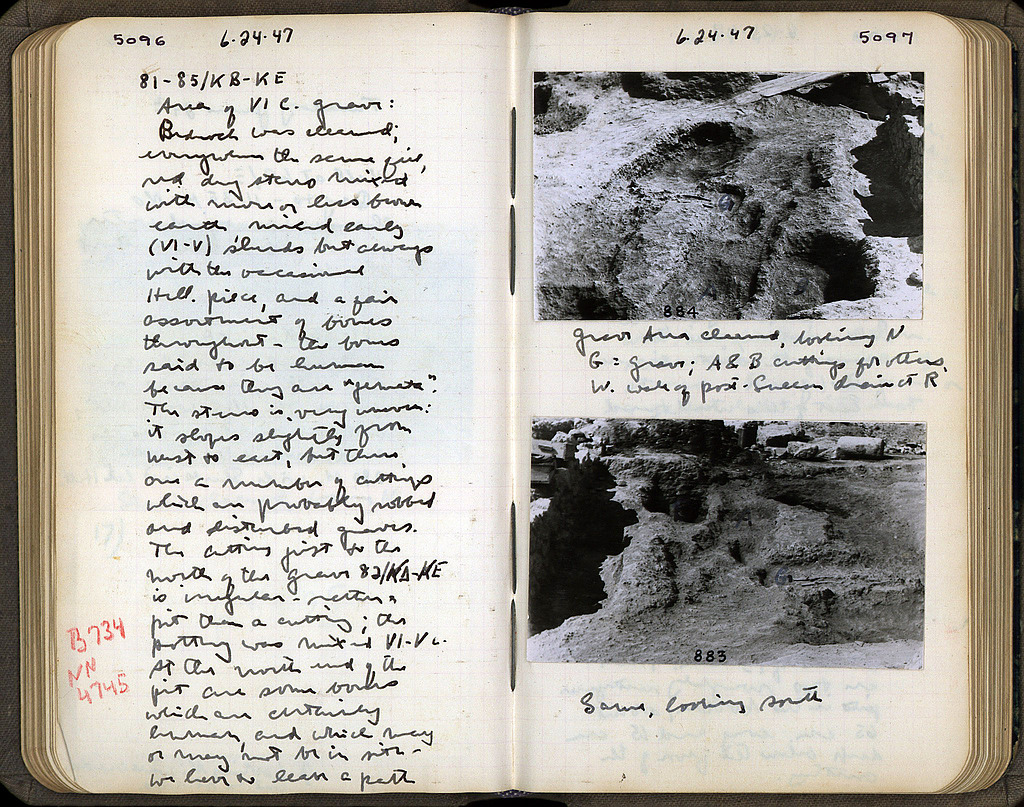 5096 6.24.47
81-85/KB-KE
Area of VI C. grave:
Bedrock was cleared;
everywhere the same fill,
red dug stereo mixed
with more or less brown
earth mixed early
(VI-V) sherds but always
with the occasional
Hell. piece, and a fair
assortment of bones
throughout - the bones
said to be human
because they are "yemata".
The stereo is very uneven:
it slopes slightly from
west to east, but there
are a number of cuttings
which are probably robbed
and disturbed graves.
The cutting just to the
north of the grave 82/KD-KE
is irregular - rather a
pit than a cutting; the
pottery was mixed VI-V c.
At the north end of the
pit are some bones
which are certainly
human, and which may
or may not be in situ -
we have to leave a path
B734
NN
4745
6.24.47 5097
884
Grave Area cleared, looking N
G = grave; A & B cuttings for others,
W. wall of post-Sullan drain at R.
883
Same, looking south